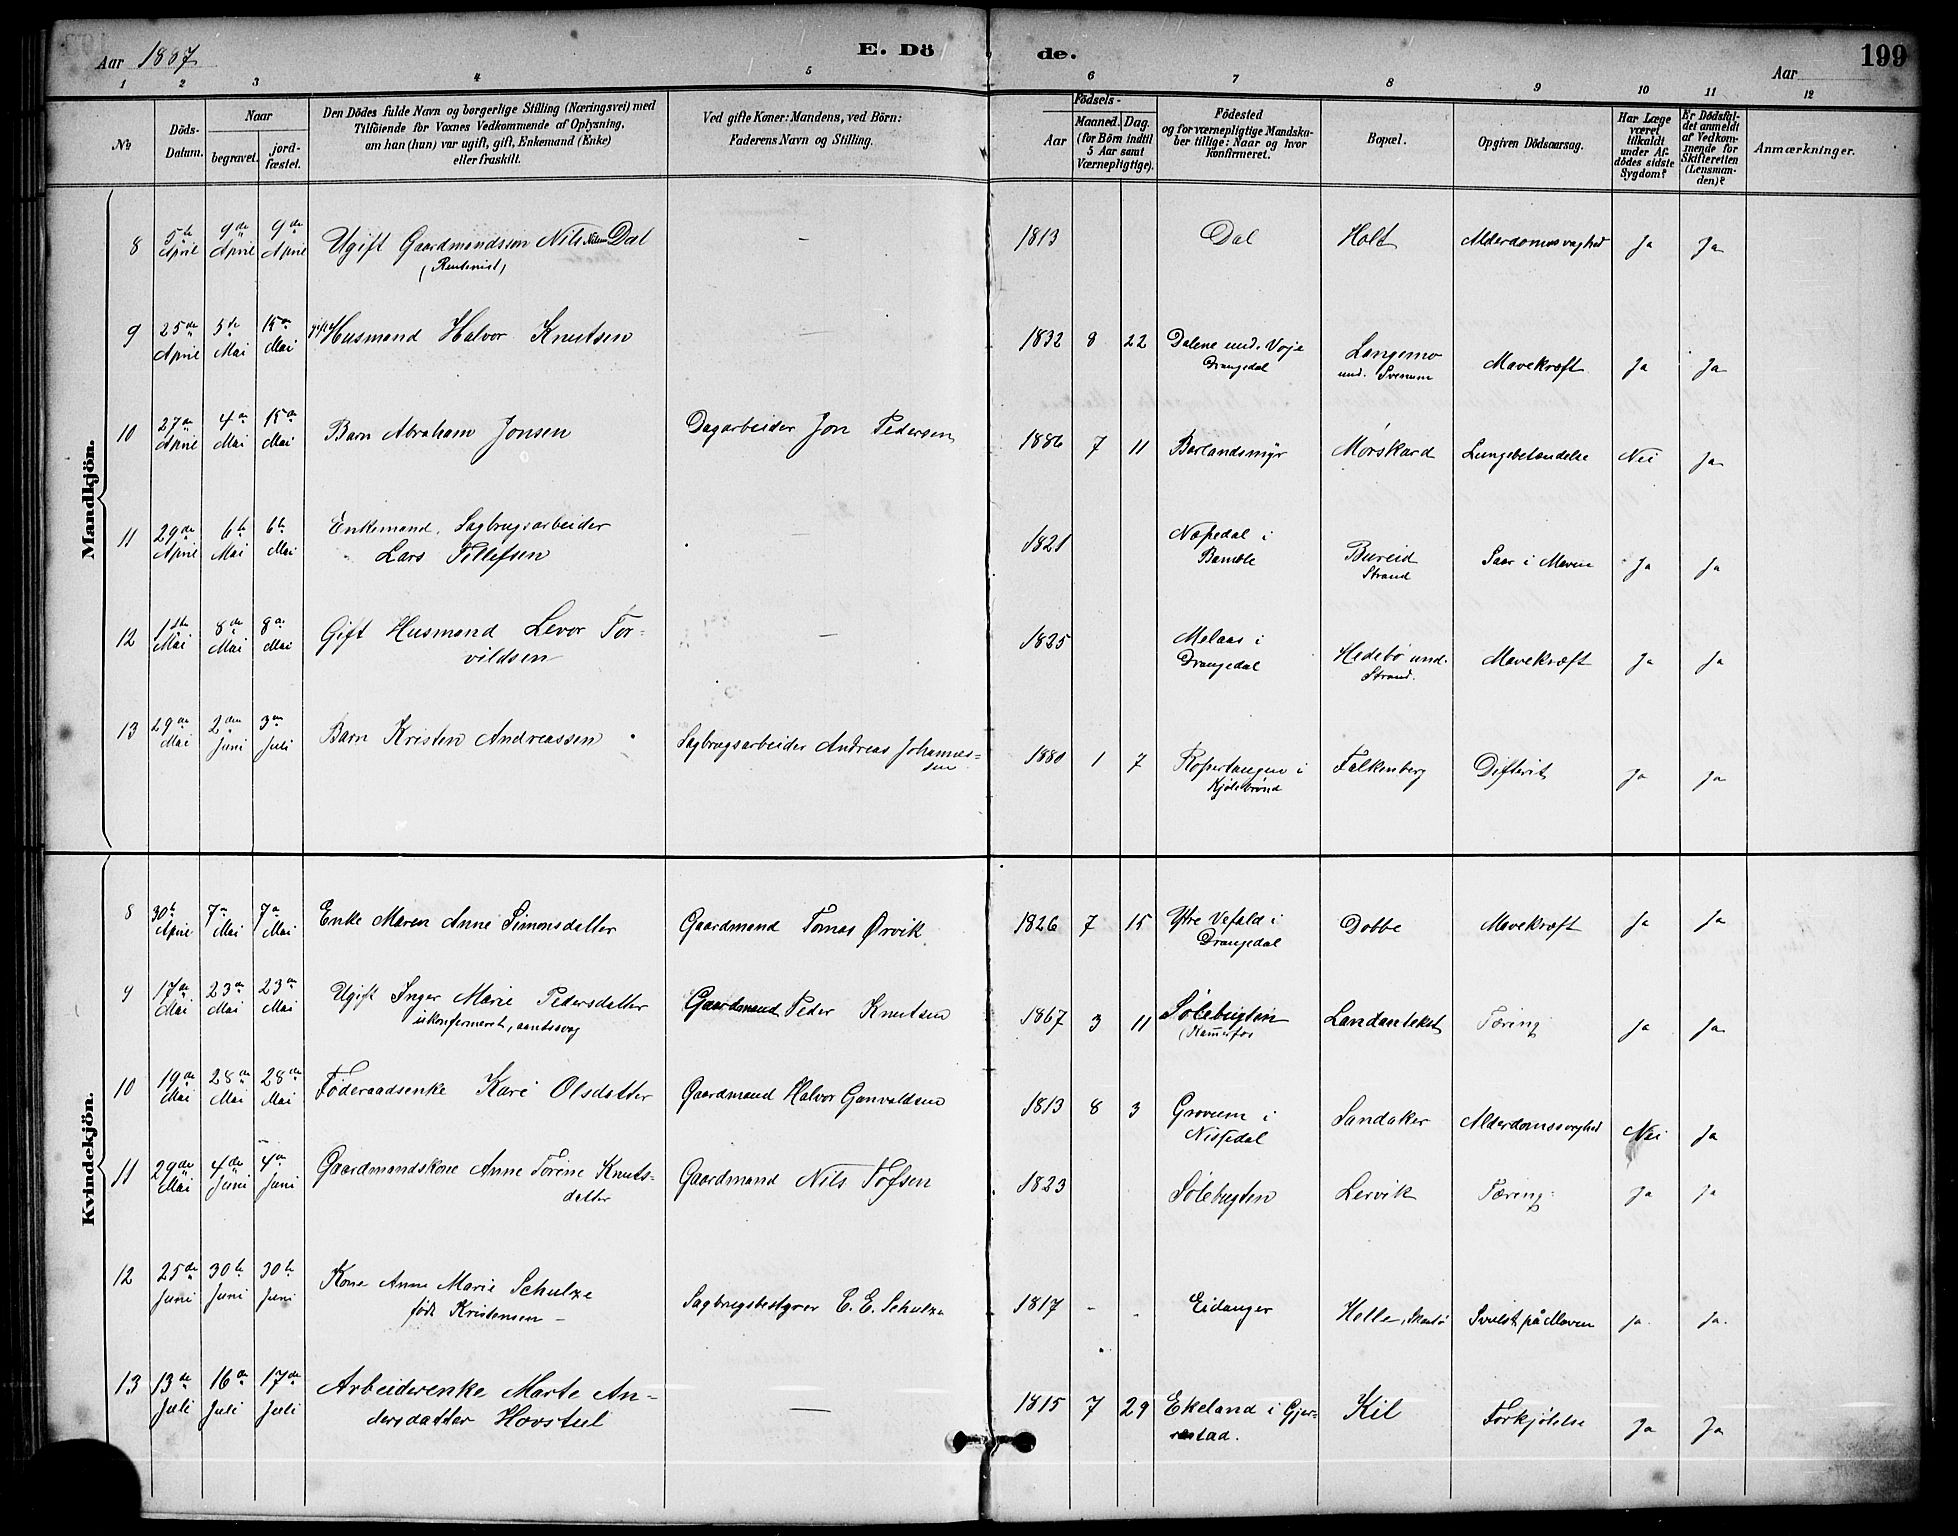 Aar 1887
E. Dö de.
Aar
199
1 2 3 4 5 6 7 8 9 10 11 12
No
Döds-Datum.
Naar
begravet.
jord-fæstet.
Den Dödes fulde Navn og borgerlige Stilling (Næringsvei) med
Tilföiende for Voxnes Vedkommende af Oplysning,
om han (hun) var ugift, gift, Enkemand (Enke)
eller fraskilt.
Ved gifte Koner: Mandens, ved Börn:
Faderens Navn og Stilling.
Födsels-
Aar
Maaned. Dag.
(for Börn indtil
5 Aar samt
Værnepligtige).
Födested
og for værnepligtige Mandska-
ber tillige: Naar og hvor
konfirmeret.
Bopæl.
Opgiven Dödsaarsag.
Har Læge
været
tilkaldt
under Af-
dödes sidste
Sygdom?
Er Dödsfal-
det anmeldt
af Vedkom-
mende for
Skifteretten
(Lensman-
den)?
Anmærkninger.
Mandkjön.
8 5te April 9de April 9de April Ugift Gaardmandssøn Nils Nilsen Dal (Rentenist) — 1813 Dal Holt Alderdomssvaghed Ja Ja
9 25de April 5te Mai 15de Mai gift Husmand Halvor Knutsen — 1832 8 22 Dalene und. Voje Drangedal Langemo und. Svenum Mavekræft Ja Ja
10 27de April 4de Mai 15de Mai Barn Abraham Jonsen Dagarbeider Jon Pedersen 1886 7 11 Barlandsmyr Mørskard Lungebetændelse Nei Ja
11 29de April 6te Mai 6te Mai Enkemand, Sagbrugsarbeider
Lars Tellefsen 1821 Napedal i Bamble Bureid Strand Saar i Maven Ja Ja
12 1ste Mai 8de Mai 8de Mai Gift Husmand Levor Tor-
vildsen — 1825 Melaas i Drangedal Hedebø und. Strand. Mavekræft Ja Ja
13 29de Mai 2den Juni 3die Juli Barn Kristen Andreassen Sagbrugsarbeider Andreas Johannes-
sen 1880 1 7 Ropertangen i Kjølebrønd Falkenberg Difterit Ja Ja
Kvindekjön.
8 30te April 7de Mai 7de Mai Enke Maren Anne Simonsdatter Gaardmand Tomas Ørvik. 1826 7 15 Ytre Vefald i Drangedal Dobbe Mavekræft Ja Ja
9 17de Mai 23de Mai 23de Mai Ugift Inger Marie Pedersdatter
ukonfirmeret, aandssvag Gaardmand Peder Knutsen 1867 3 11 Sølebugten (Kammerfos Landantekst Tæring Ja Ja
10 19de Mai 28de Mai 28de Mai Føderaadsenke Kari Olsdatter Gaardmand Halvor Gunvaldsen 1813 8 3 Grovum i Nissedal Sandaker Alderdomssvaghed Nei Ja
11 29de Mai 4de Juni 4de Juni Gaardmandskone Anne Torine Knuts-
datter Gaardmand Nils Tofsen 1823 Sølebugten Lervik Tæring Ja Ja
12 25de Juni 30te Juni 30te Juni Kone Anne Marie Schulze
født Kristensen — Sagbrugsbestyrer C. E. Schulze 1817 - - Eidanger Helle, Skaatø Svulst på Maven Ja. Ja.
13 13de Juli 16de Juli 17de Juli Arbeiderenke Marte An-
dersdatter Hovstul — 1815 7 29 Ekeland i Gjer-
restad. Kil Forkjølelse Ja Ja